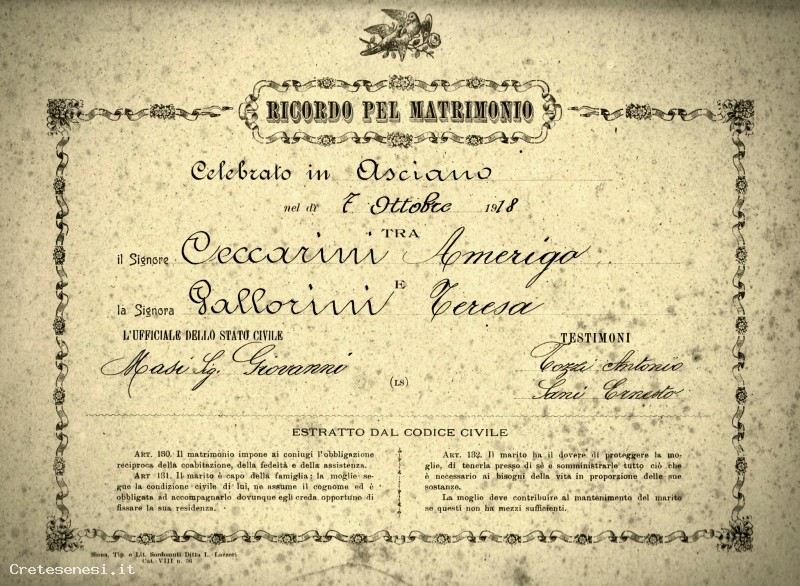 RICORDO PEL MATRIMONIO
Celebrato in Asciano
nel dì 7 Ottobre 1918
TRA
il Signore Ceccarini Amerigo
E
la Signora Gallorini Teresa
L'UFFICIALE DELLO STATO CIVILE
TESTIMONI
Masi Sg. Giovanni
Tozzi Antonio
(LS)
Sani Ernesto
ESTRATTO DAL CODICE CIVILE
ART. 130. Il matrimonio impone ai coniugi l'obbligazione
reciproca della coabitazione, della fedeltà e della assistenza.
ART. 131. Il marito è capo della famiglia: la moglie se-
gue la condizione civile di lui, ne assume il cognome ed è
obbligata ad accompagnarlo dovunque egli creda opportuno di
fissare la sua residenza.
ART. 132. Il marito ha il dovere di proteggere la mo-
glie, di tenerla presso di sè e somministrarle tutto ciò che
è necessario ai bisogni della vita in proporzione delle sue
sostanze.
La moglie deve contribuire al mantenimento del marito
se questi non ha mezzi sufficienti.
Siena, Tip. e Lit. Sordomuti Ditta L. Lazzeri
Cat. VIII n. 96
Cretesenesi.it